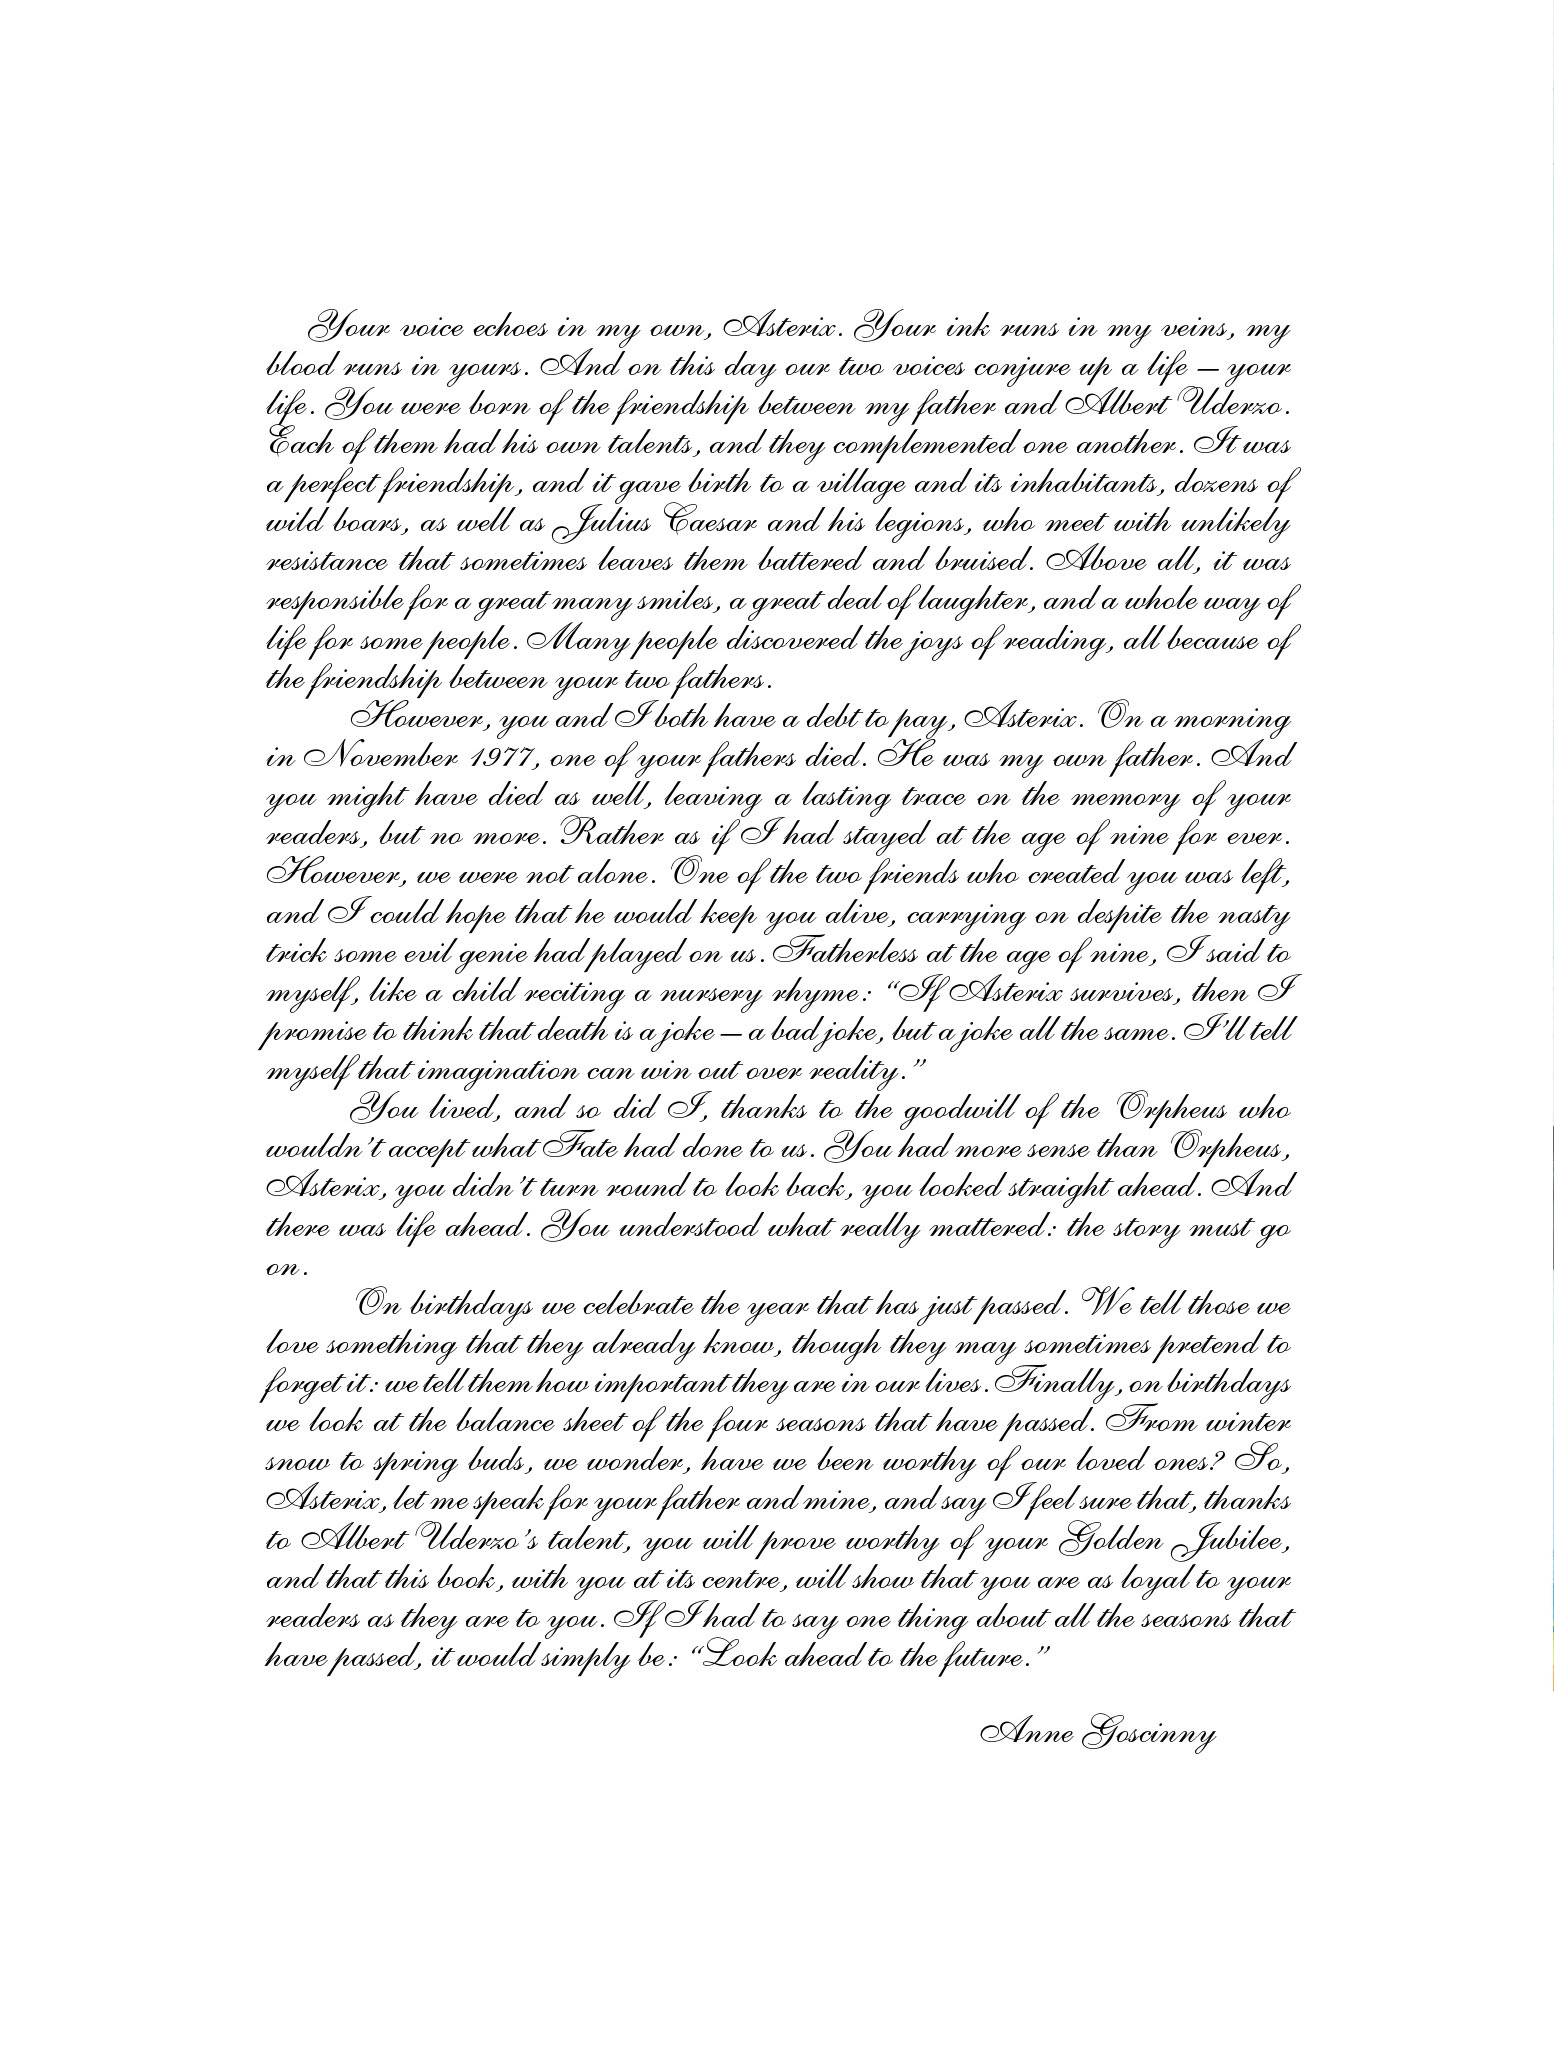 Your voice echoes in my own, Asterix. Your ink runs in my veins, my
blood runs in yours. And on this day our two voices conjure up a life – your
life. You were born of the friendship between my father and Albert Uderzo.
Each of them had his own talents, and they complemented one another. It was
a perfect friendship, and it gave birth to a village and its inhabitants, dozens of
wild boars, as well as Julius Caesar and his legions, who meet with unlikely
resistance that sometimes leaves them battered and bruised. Above all, it was
responsible for a great many smiles, a great deal of laughter, and a whole way of
life for some people. Many people discovered the joys of reading, all because of
the friendship between your two fathers.
However, you and I both have a debt to pay, Asterix. On a morning
in November 1977, one of your fathers died. He was my own father. And
you might have died as well, leaving a lasting trace on the memory of your
readers, but no more. Rather as if I had stayed at the age of nine for ever.
However, we were not alone. One of the two friends who created you was left,
and I could hope that he would keep you alive, carrying on despite the nasty
trick some evil genie had played on us. Fatherless at the age of nine, I said to
myself, like a child reciting a nursery rhyme: “If Asterix survives, then I
promise to think that death is a joke – a bad joke, but a joke all the same. I’ll tell
myself that imagination can win out over reality.”
You lived, and so did I, thanks to the goodwill of the Orpheus who
wouldn’t accept what Fate had done to us. You had more sense than Orpheus,
Asterix, you didn’t turn round to look back, you looked straight ahead. And
there was life ahead. You understood what really mattered: the story must go
on.
On birthdays we celebrate the year that has just passed. We tell those we
love something that they already know, though they may sometimes pretend to
forget it: we tell them how important they are in our lives. Finally, on birthdays
we look at the balance sheet of the four seasons that have passed. From winter
snow to spring buds, we wonder, have we been worthy of our loved ones? So,
Asterix, let me speak for your father and mine, and say I feel sure that, thanks
to Albert Uderzo’s talent, you will prove worthy of your Golden Jubilee,
and that this book, with you at its centre, will show that you are as loyal to your
readers as they are to you. If I had to say one thing about all the seasons that
have passed, it would simply be: “Look ahead to the future.”
Anne Goscinny